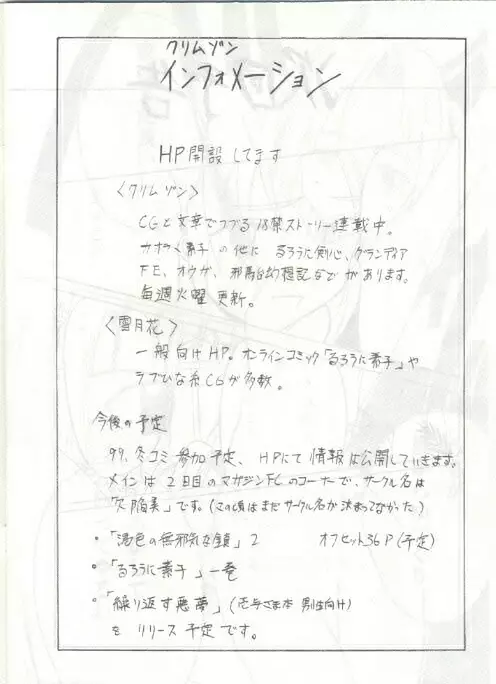 クリムゾン
インフォメーション
HP開設してます
〈クリムゾン〉
CGと文章でつづる18禁ストーリー連載中。
素子の他に るろうに剣心、グランディア
FE、オウガ、邪馬台幻想記などがあります。
毎週火曜更新。
〈雪月花〉
一般向けHP。オンラインコミック「るろうに素子」や
ラブひな系CGが多数。
今後の予定
99.冬コミ参加予定、HPにて情報は公開していきます。
メインは2日目のマガジンFCのコーナーで、サークル名は
「欠陥美」です。(この頃はまだサークル名が決まってなかった)
・「色の無邪気な鎖」2 オフセット36P(予定)
・「るろうに素子」一巻
・「繰り返す悪夢」(壱与さま本 男性向け)
を リリース予定です。